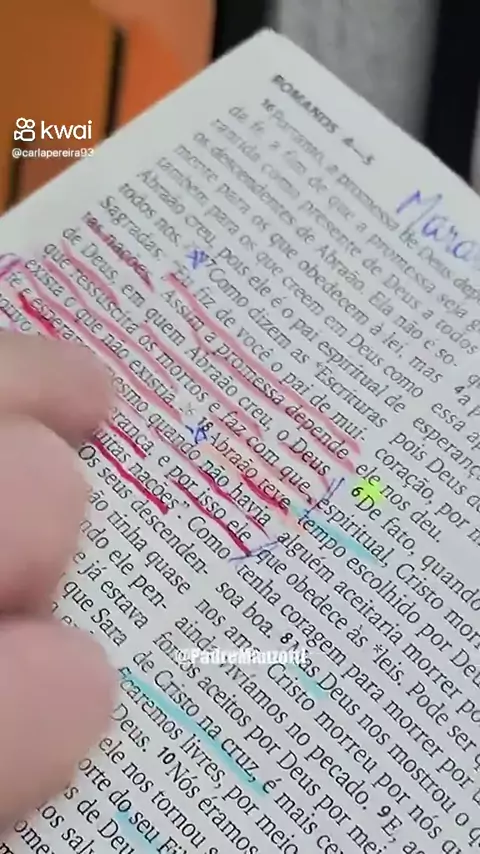 kwai
@carlapereira93
ROMANOS 4—5
16 Portanto, a promessa de Deus dep
da fé, a fim de que a promessa seja g
rantida como presente de Deus a todos
os descendentes de Abraão. Ela não é so-
mente para os que obedecem à lei, mas
também para os que creem em Deus como
Abraão creu, pois ele é o pai espiritual de
todos nós. 17 Como dizem as *Escrituras
Sagradas: "Eu fiz de você o pai de mui-
tas nações." Assim a promessa depende
de Deus, em quem Abraão creu, o Deus
que ressuscita os mortos e faz com que
exista o que não existia. 18 Abraão teve
fé e esperan esmo quando não havia
erança, e por isso ele
uitas nações". Como
Os seus descenden-
tinha quase
ele pen-
e já estava
que Sara
Mara
essa
esperanç
pois Deus d
coração, por m
ele nos deu.
6 De fato, quando
espiritual, Cristo mor
tempo escolhido por De
alguém aceitaria morrer po
que obedece às *leis. Pode ser q
tenha coragem para morrer por
soa boa. 8 Deus nos mostrou o q
nos ama: Cristo morreu por nós q
ainda vivíamos no pecado. 9 E, a
fomos aceitos por Deus por mei
de Cristo na cruz, é mais ce
caremos livres, por meio
Deus. 10 Nós éramos
ele nos tornou s
orte do seu
os de Deus
@PadreManzotti